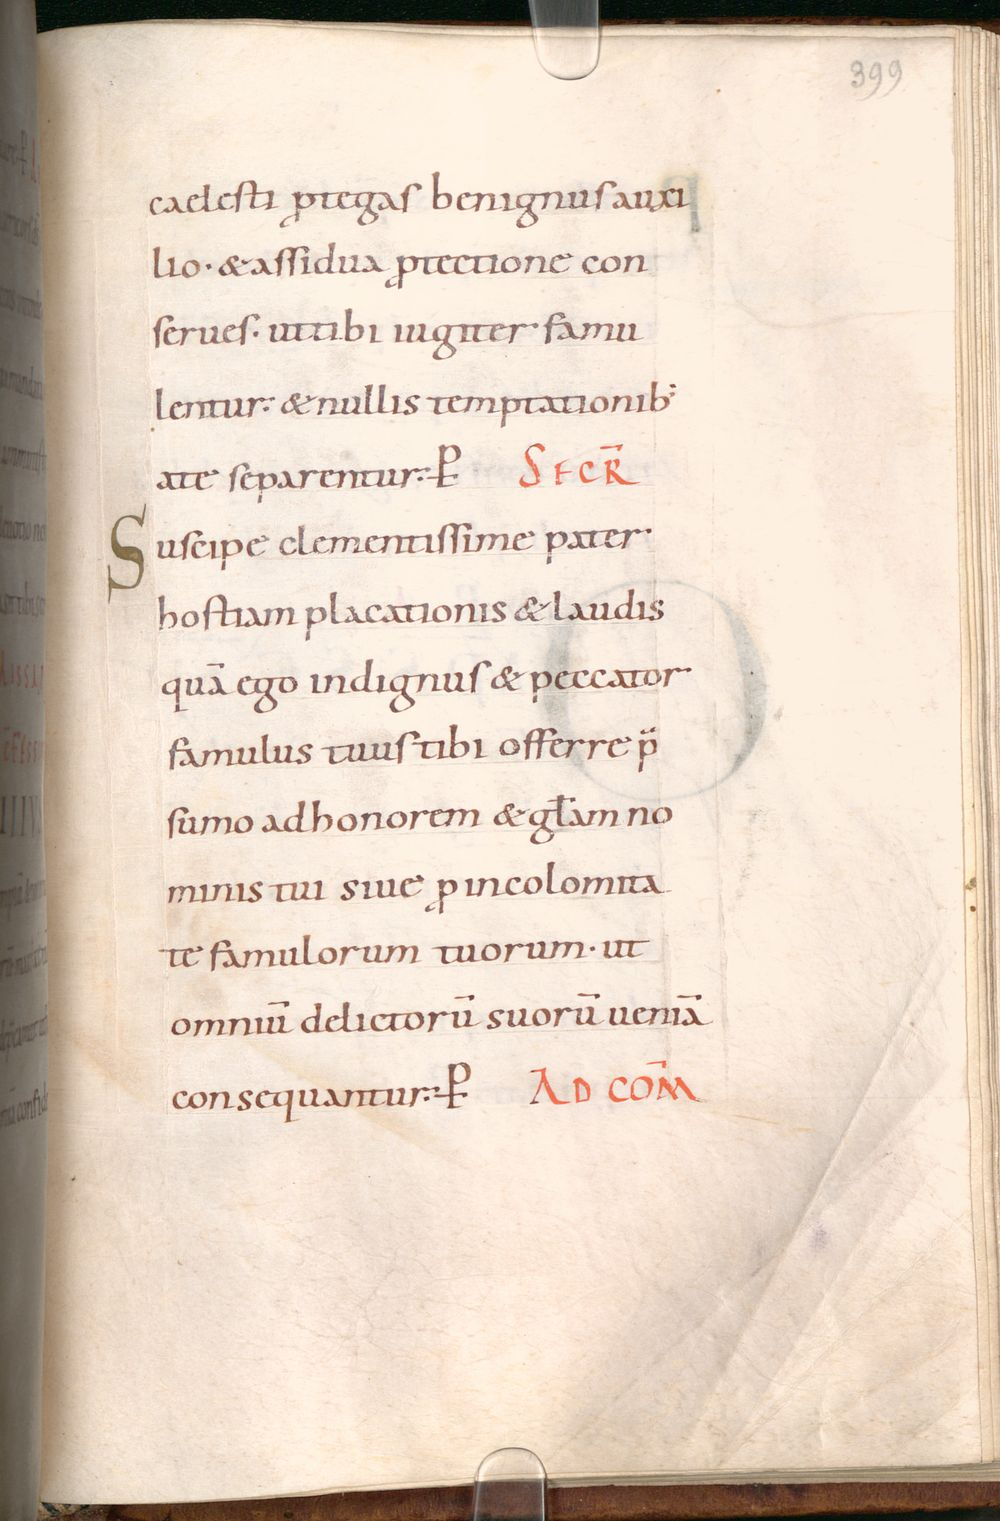 399
caelesti ꝓtegas benignus auxi
lio· & assidua ꝓtectione con
serues· ut tibi iugiter famu
lentur· & nullis temptationib;
a te separentur· P̵ SECR̄
Suscipe clementissime pater
hostiam placationis & laudis
quā ego indignus & peccator
famulus tuus tibi offerre p̄
sumo ad honorem & gl̄am no
minis tui siue ꝓ incolomita
te famulorum tuorum· ut
omniū delictorū suorū ueniā
consequantur· P̵ AD COM̄